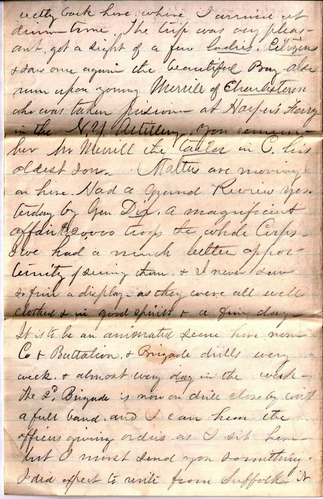 back here where I arrived at
dinner time. The trip was very pleas-
ant, got a sight of a few ladies, Citizens
& saw once again the beautiful Bay. also
run upon young Merrill of Charlestown
who was taken prisoner at Harpers Ferry
in the N.Y. Artillery. You remem-
ber Mr Merrill the tailor in C. his
oldest son. Matters are moving
on here. Had a grand Review yes-
terday by Gen Dix. a magnificent
affair troops the whole Corps
& we had a much better oppor-
tunity of seeing them. & I never saw
so fine a display as they were all well
clothed & in good spirits & a fine day.
It is to be an animated scene here now
Co & Battalion & Brigade drills every
week. & almost every day in the week
the Brigade is now on drill close by with
a full band and I can hear the
officers giving orders as I sit here
but I must send you something.
I did expect to write from Suffolk. it